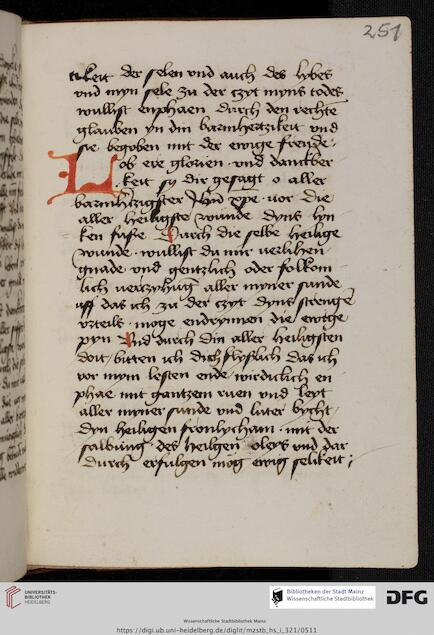 251
keit der selen vnd auch des lybes
vnd myn sele zu der czyt myns todes
wullist enphaen durch den rechte
glauben yn din barmhertzikeit vnd
sie begoben mit der ewige freude
Lob ere glorien vnd danckber
keit sy dir gesagt o aller
barmh'tzigster jhu xpe vor die
aller heiligste wunde dyns lyn
ken fusse Durch die selbe heilige
wunde wullist du mir verlihen
gnade vnd gentzlich oder folkom
lich verczyhug aller myner sunde
uff das ich zu der czyt dyns strenge
vrteils moge endrynnen die ewige
pyn Vnd durch din aller heiligsten
doit bitten ich dich flyslich das ich
vor mym lesten ende wirdiclich en
phae mit gantzem ruen vnd leyt
aller myner sunde vnd luter bycht
dyn heiligen fronlycham mit der
salbung des heilgen oleys vnd dar
durch erfulgen mog ewig selikeit
UNIVERSITÄTS-
BIBLIOTHEK
HEIDELBERG
Bibliotheken der Stadt Mainz
Wissenschaftliche Stadtbibliothek
DFG
Wissenschaftliche Stadtbibliothek Mainz
https://digi.ub.uni-heidelberg.de/diglit/mzstb_hs_i_321/0511